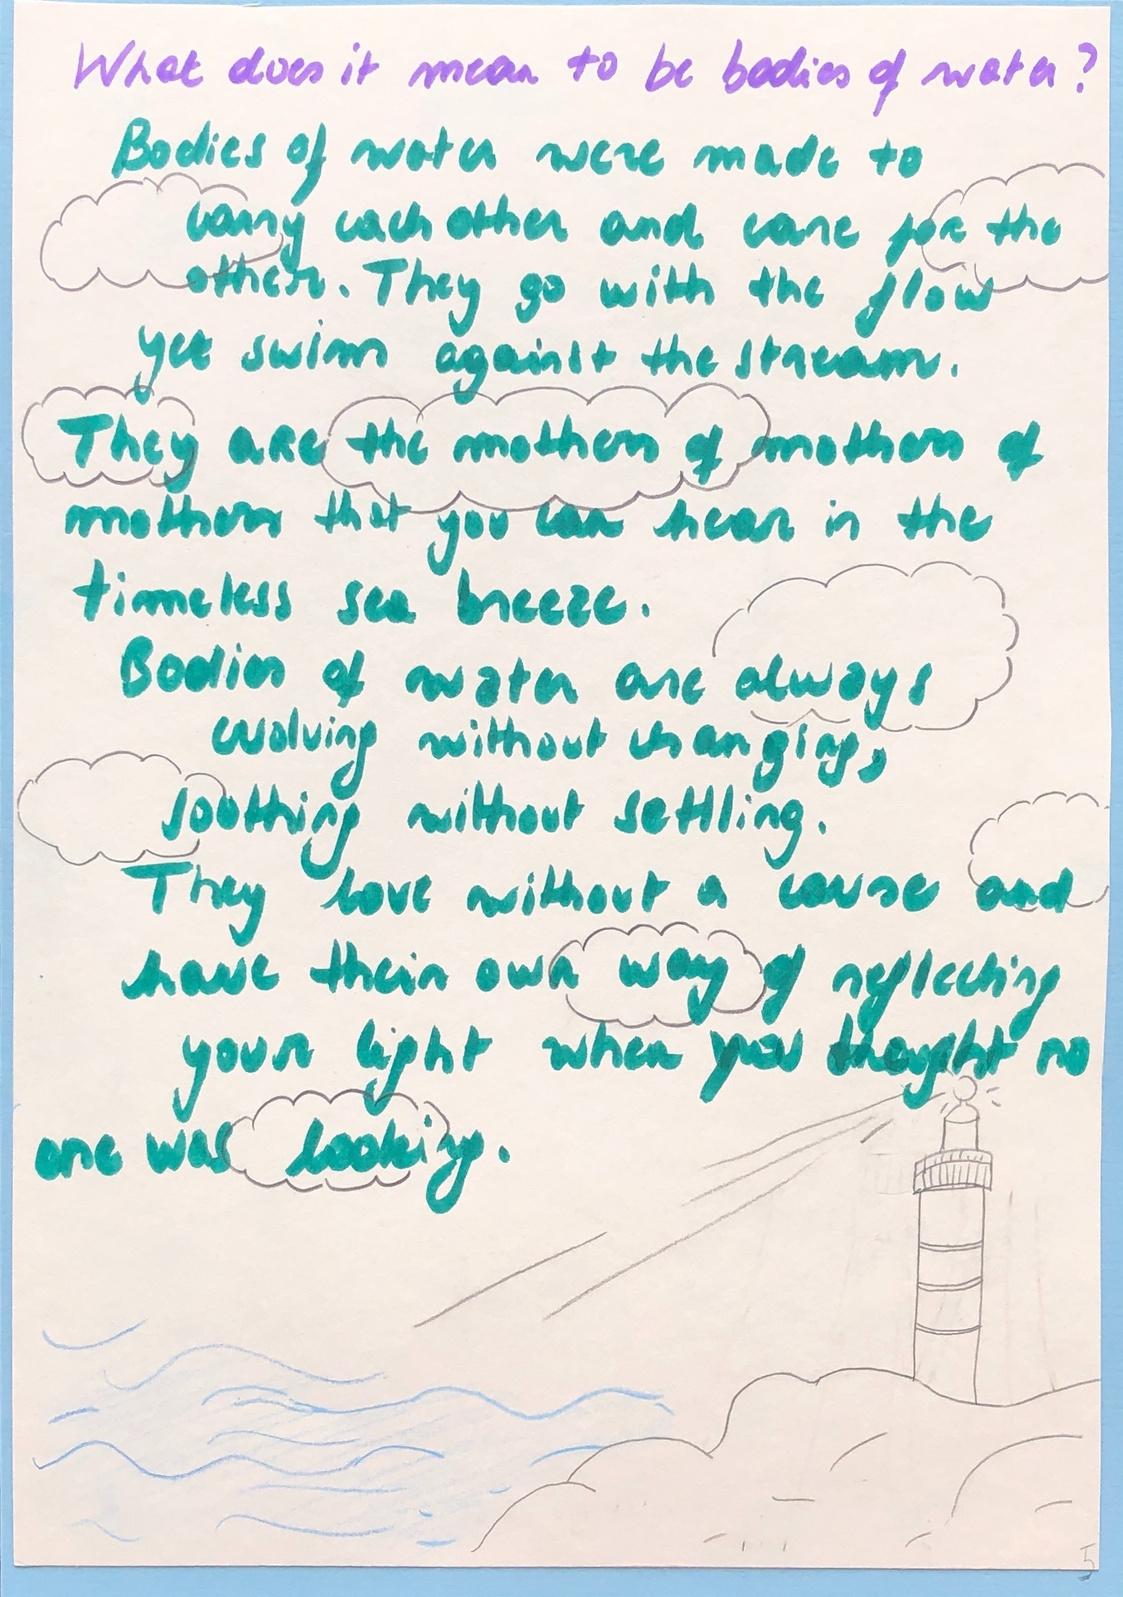 What does it mean to be bodies of water?
Bodies of water were made to
carry each other and care for the
other. They go with the flow
yet swim against the stream.
They are the mothers of mothers of
mothers that you can hear in the
timeless sea breeze.
Bodies of water are always
evolving without changing,
soothing without settling.
They love without a cause and
have their own way of reflecting
your light when you thought no
one was looking.
5